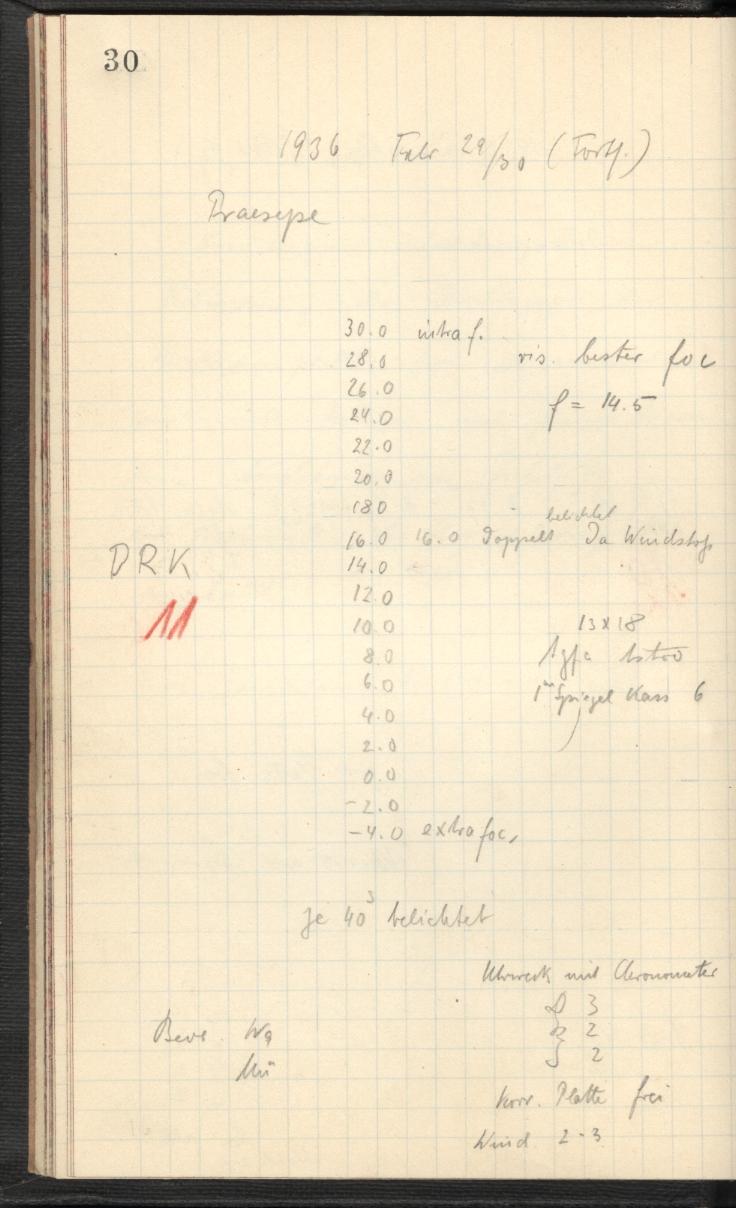 30
1936 Febr 29/30 (Forts.)
Praesepe
30.0 intraf.
28.0 vis. bester foc
26.0
f = 14.5
24.0
22.0
20.0
18.0
belichtet
16.0 16.0 Doppelt Da Windstoß
DRK
14.0
12.0
11
10.0 13x18
8.0 Agfa Astro
6.0 1m Spiegel Kass 6
4.0
2.0
0.0
-2.0
-4.0 extrafoc.
Je 40s belichtet
Uhrwerk mit Chronometer
3
Beob. Wa 2
2
Mü
Korr. Platte frei
Wind 2-3